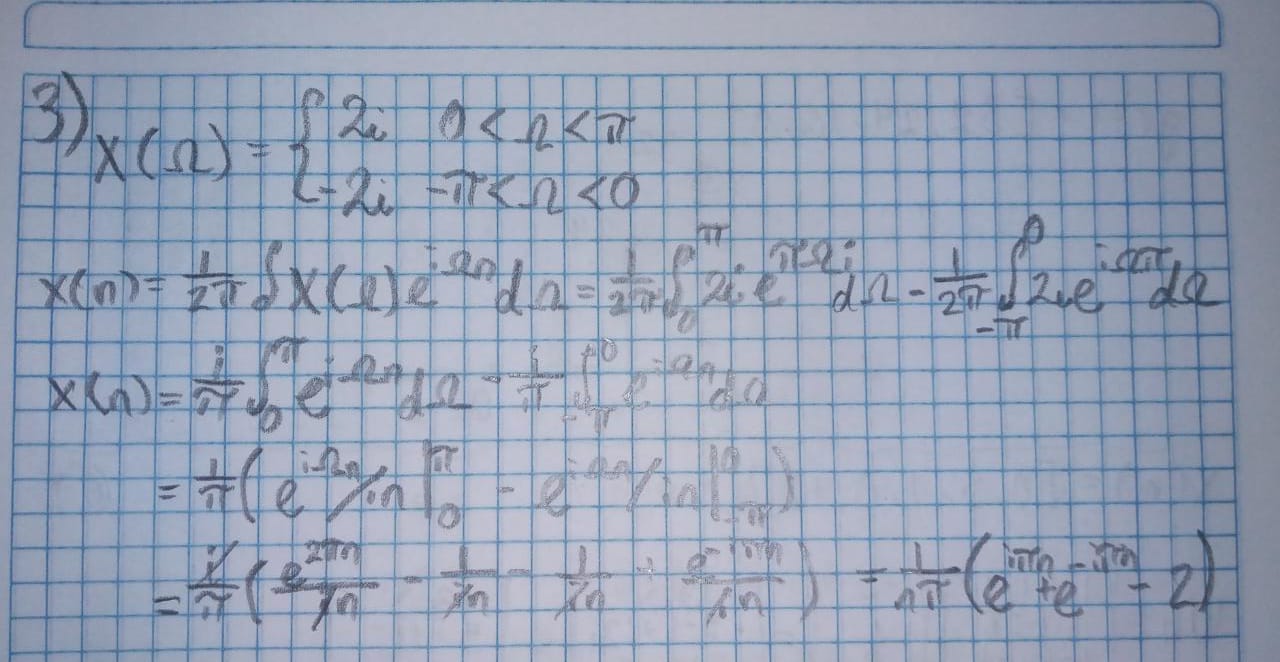 3) X(Ω) = { 2i 0 < Ω < π
-2i -π < Ω < 0
x(n) = 1/2π ∫ X(Ω) e^{iΩn} dΩ = 1/2π ∫_0^π 2i e^{πΩi} dΩ - 1/2π ∫_{-π}^0 2i e^{iΩπ} dΩ
x(n) = i/π ∫_0^π e^{iΩn} dΩ - i/π ∫_{-π}^0 e^{iΩn} dΩ
= i/π ( e^{iΩn}/in |_0^π - e^{iΩn}/in |_{-π}^0 )
= i/π ( e^{iπn}/in - 1/in - 1/in + e^{-iπn}/in ) = 1/nπ ( e^{iπn} + e^{-iπn} - 2 )